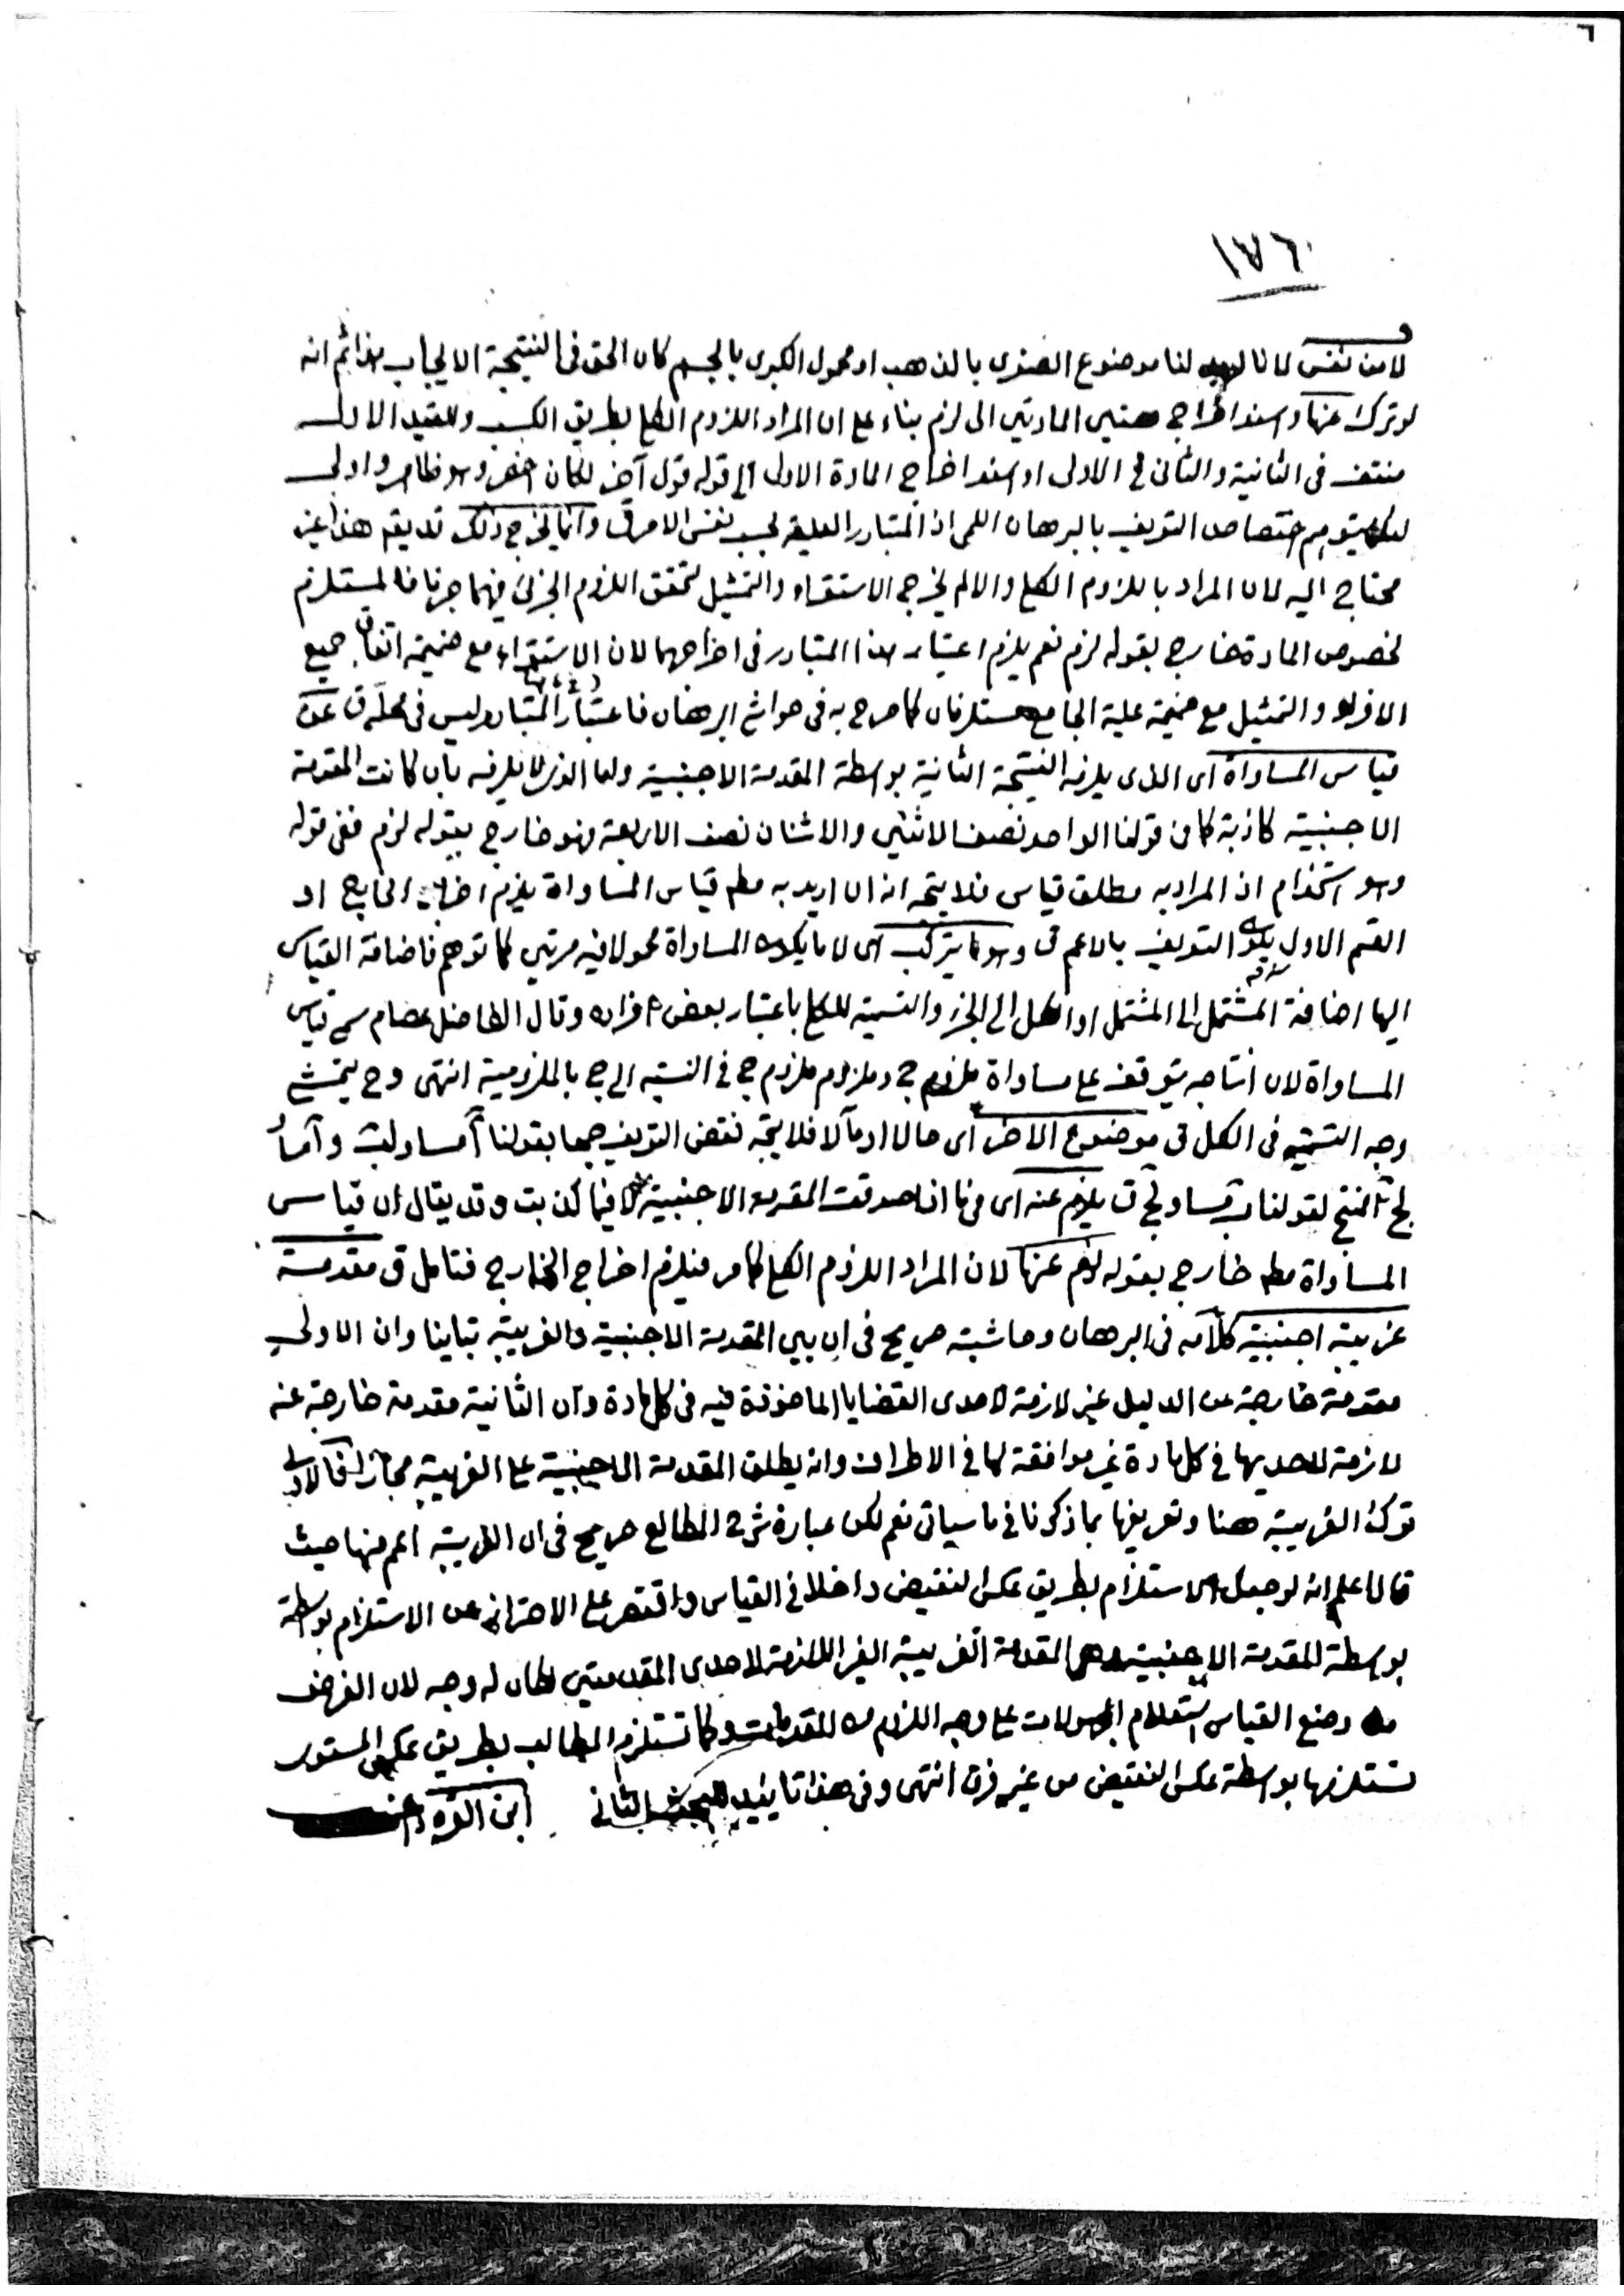 ٦
١٧٦
لا من نفس لانا لنا موضوع الصغرى بالذهب او محمول الكبرى بالجسم كان الحق فى النتيجة الايجاب هذا ثم انه
لو ترك عنها واسند اخراج هتين المادتين الى لزم بناء على ان المراد اللزوم الكلى بطريق الكسب والقيد الاول
منتف فى الثانية والثانى فى الاولى او اسند اخراج المادة الاولى الى قوله قول آخر لكان اخصر وهو ظاهر واولى
لئلا يتوهم اختصاص التعريف بالبرهان اللمى اذ المتبادر العلية بحسب نفس الامر ق وانما يخرج ذلك قد يقم هذا غير
محتاج اليه لان المراد باللزوم الكلى والا لم يخرج الاستقراء والتمثيل لتحقق اللزوم الجزئى فيهما جزما فالمستلزم
لخصوص المادة خارج بقوله لزم نعم يلزم اعتبار هذا المتبادر فى اخراجهما لان الاستقراء مع ضميمة اتفاق جميع
الافراد والتمثيل مع ضميمة علية الجامع مستلزمان كما صرح به فى حواشى البرهان فاعتبار المتبادر ليس فى محله ق عن
قياس المساواة اى الذى يلزمه النتيجة الثانية بواسطة المقدمة الاجنبية واما الذى لا يلزمه بان كانت المقدمة
الاجنبية كاذبة كما فى قولنا الواحد نصف الاثنين والاثنان نصف الاربعة فهو خارج بقوله لزم ففى قوله
وهو استخدام اذ المراد به مطلق قياس فلا يتجه انه ان اريد به مطم قياس المساواة يلزم اخراج الخارج او
القسم الاول يكون التعريف بالاعم ق وهو ما يتركب اى لا ما يكون المساواة محمولا فيه مرتين كما توهم فاضافة القياس
اليها اضافة المشتمل الى المشتمل او الكل الى الجزء والتسمية للكلى باعتبار بعض افراده وقال الفاضل عصام سمى قياس
المساواة لان انتاجه يتوقف على مساواة ملزوم ج وملزوم ملزوم ج فى النسبة الى ج بالملزومية انتهى وح يتمشى
وجه التسمية فى الكل ق موضوع الاخر اى حالا او مآلا فلا يتجه نقض التعريف جمعا بقولنا آ مساو لب و آ مساو
لج المنتج لقولنا ب مساو لج ق يلزم عنه اى فيما اذا صدقت المقدمة الاجنبية لا فيما كذبت وقد يقال ان قياس
المساواة مطم خارج بقوله لزم عنها لان المراد اللزوم الكلى كما مر فيلزم اخراج الخارج فتامل ق مقدمة
غريبة اجنبية كلامه فى البرهان وحاشيته صريح فى ان بين المقدمة الاجنبية والغريبة تباينا وان الاولى
مقدمة خارجة عن الدليل غير لازمة لاحدى القضايا الماخوذة فيه فى كل مادة وان الثانية مقدمة خارجة عنه
لازمة لاحديها فى كل مادة غير موافقة لها فى الاطراف وانه يطلق المقدمة الاجنبية على الغريبة مجازا فالاولى
ترك الغريبة هنا وتعريفها بما ذكرنا فى ما سياتى نعم لكن عبارة شرح المطالع صريح فى ان الغريبة اعم منها حيث
قال اعلم انه لو جعل الاستلزام بطريق عكس النقيض داخلا فى القياس واقتصر على الاحتراز عن الاستلزام بواسطة
بواسطة المقدمة الاجنبية وهى المقدمة الغريبة الغير اللازمة لاحدى المقدمتين لكان له وجه لان الغرض
من وضع القياس استعلام المجهولات على وجه اللزوم من المقدمات وكما تستلزم المطالب بطريق عكس المستوى
تستلزمها بواسطة عكس النقيض من غير فرق انتهى وفى هذا تاييد للبحث الثانى ابن القره داغى